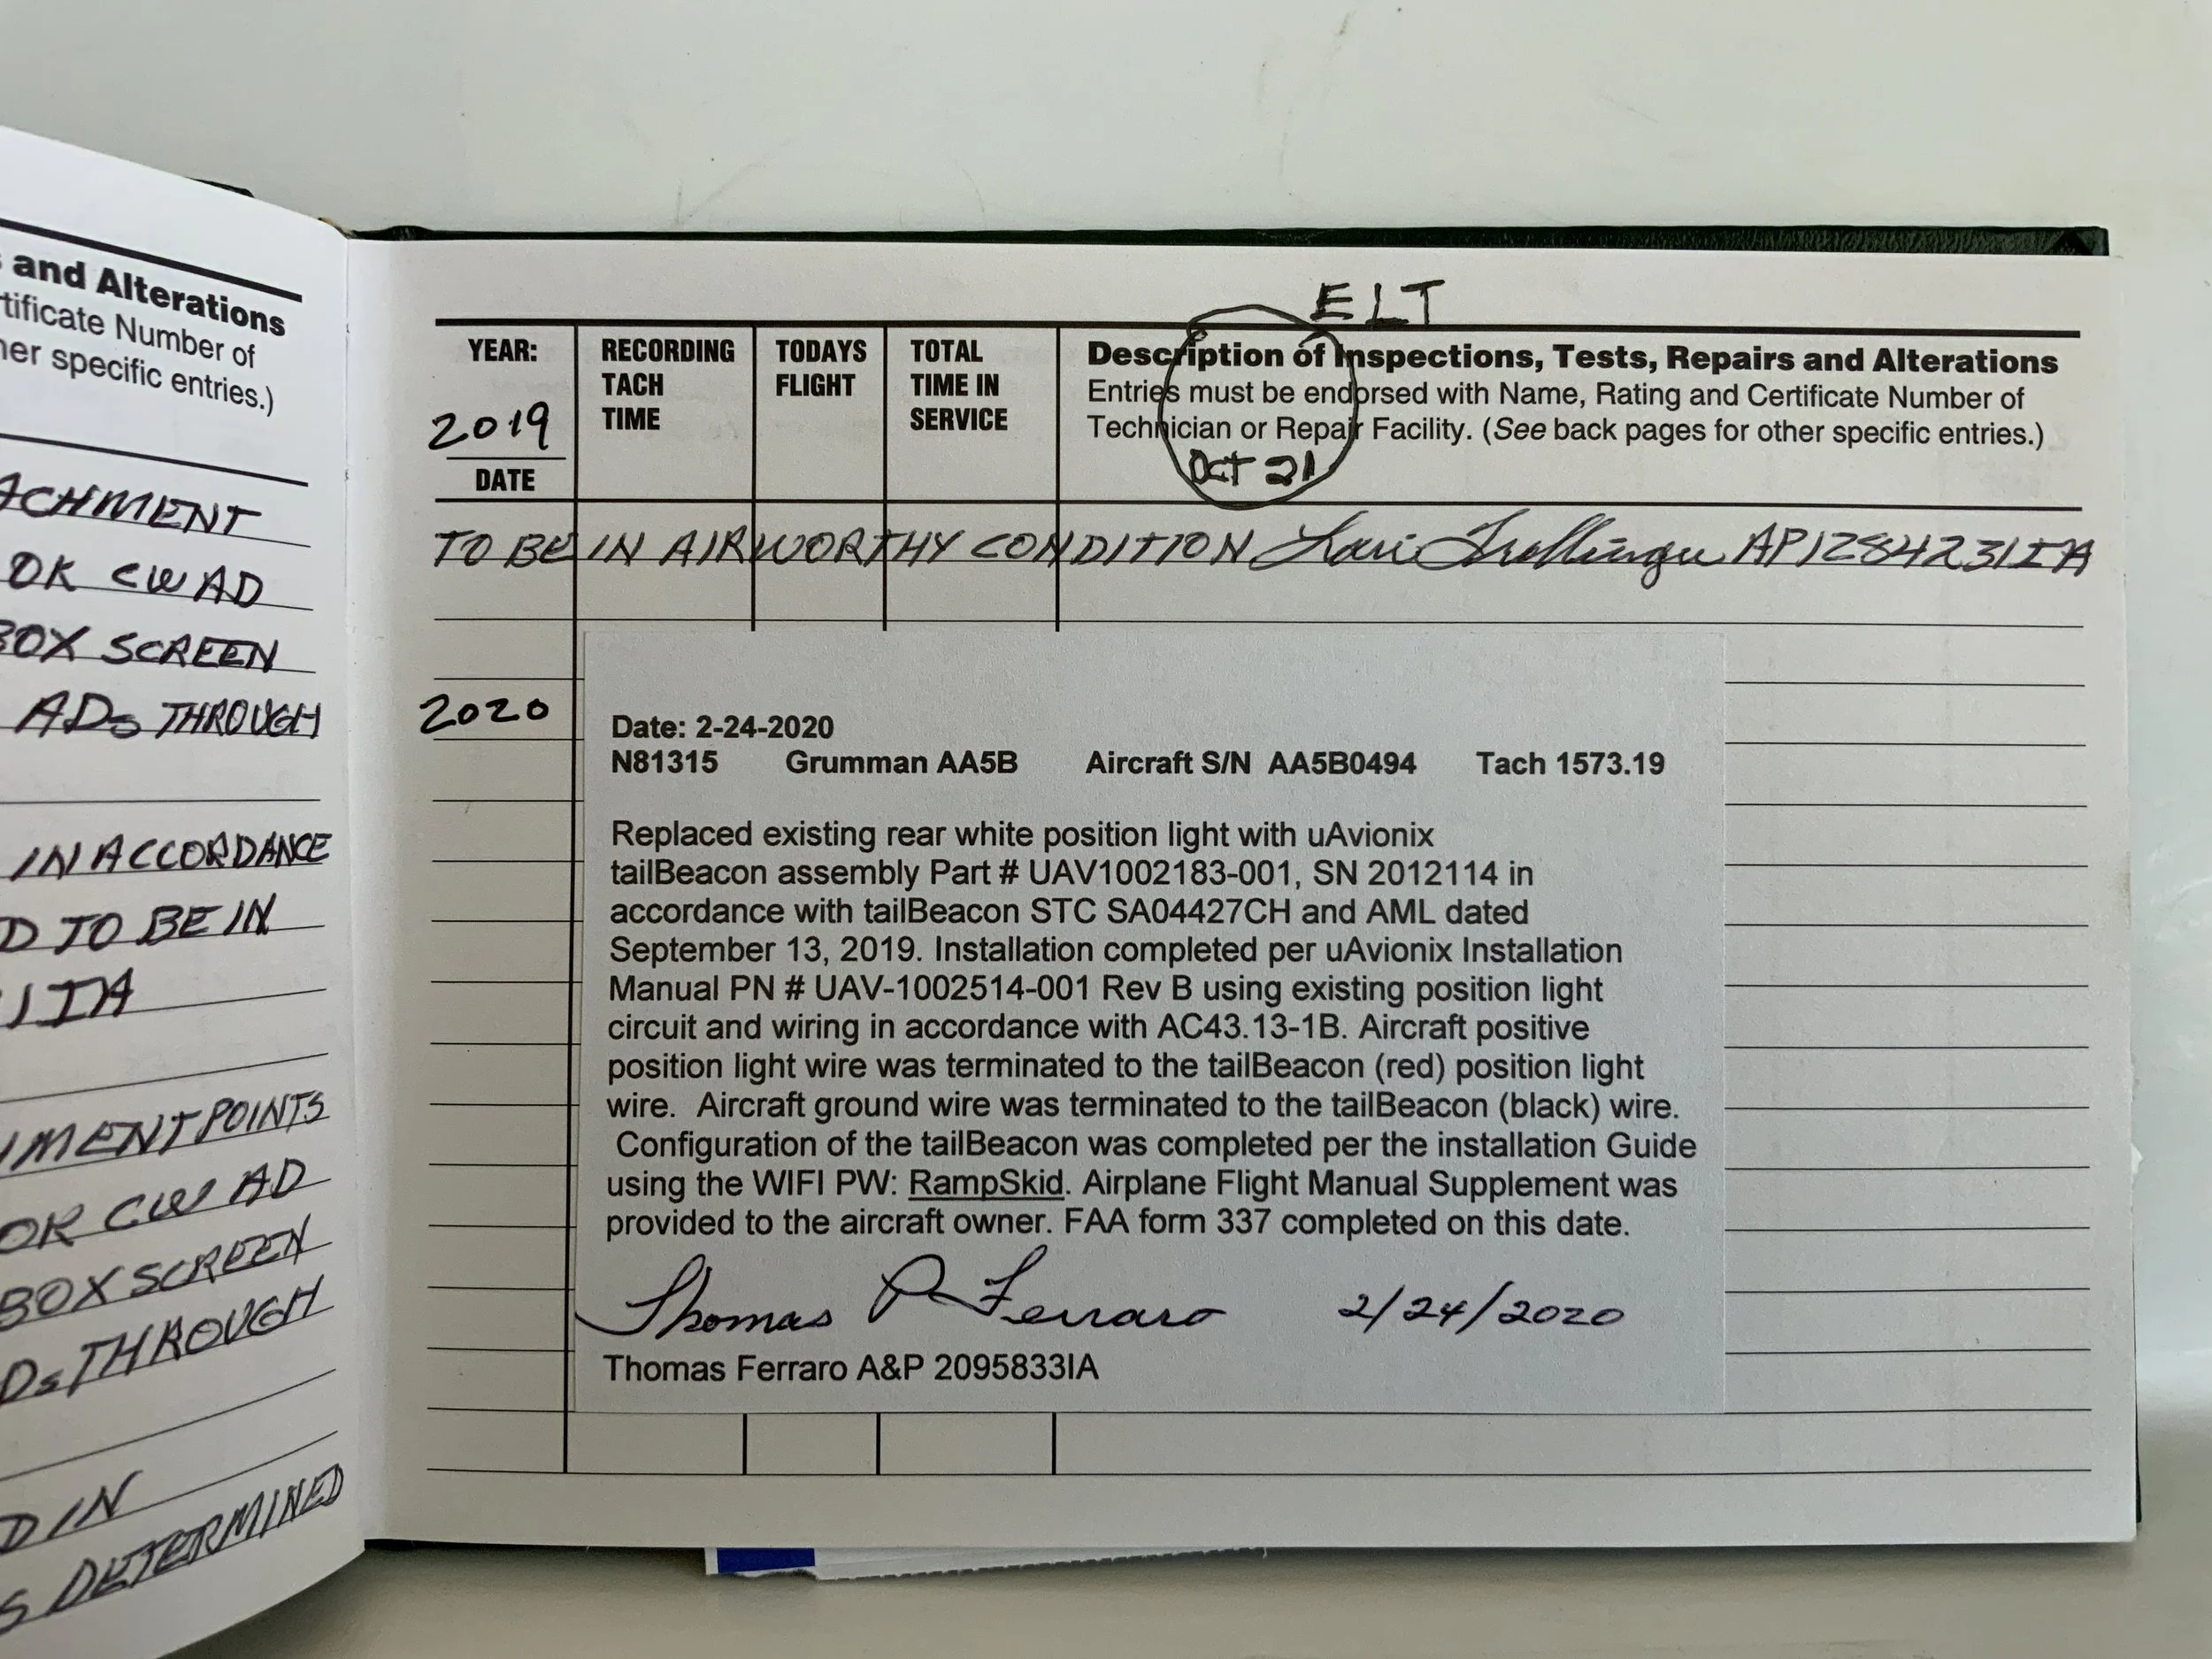 and Alterations
tificate Number of
her specific entries.)
ACHMENT
OK CW AD
BOX SCREEN
ADs THROUGH
IN ACCORDANCE
D TO BE IN
1 IA
MENT POINTS
OR CW AD
BOX SCREEN
Ds THROUGH
D IN
S DETERMINED
ELT
YEAR:
2019
DATE
RECORDING
TACH
TIME
TODAYS
FLIGHT
TOTAL
TIME IN
SERVICE
Description of Inspections, Tests, Repairs and Alterations
Entries must be endorsed with Name, Rating and Certificate Number of
Technician or Repair Facility. (See back pages for other specific entries.)
OCT 21
TO BE IN AIRWORTHY CONDITION Lori Trollinger AP1284231IA
2020
Date: 2-24-2020
N81315 Grumman AA5B Aircraft S/N AA5B0494 Tach 1573.19
Replaced existing rear white position light with uAvionix
tailBeacon assembly Part # UAV1002183-001, SN 2012114 in
accordance with tailBeacon STC SA04427CH and AML dated
September 13, 2019. Installation completed per uAvionix Installation
Manual PN # UAV-1002514-001 Rev B using existing position light
circuit and wiring in accordance with AC43.13-1B. Aircraft positive
position light wire was terminated to the tailBeacon (red) position light
wire. Aircraft ground wire was terminated to the tailBeacon (black) wire.
Configuration of the tailBeacon was completed per the installation Guide
using the WIFI PW: RampSkid. Airplane Flight Manual Supplement was
provided to the aircraft owner. FAA form 337 completed on this date.
Thomas P Ferraro 2/24/2020
Thomas Ferraro A&P 2095833IA